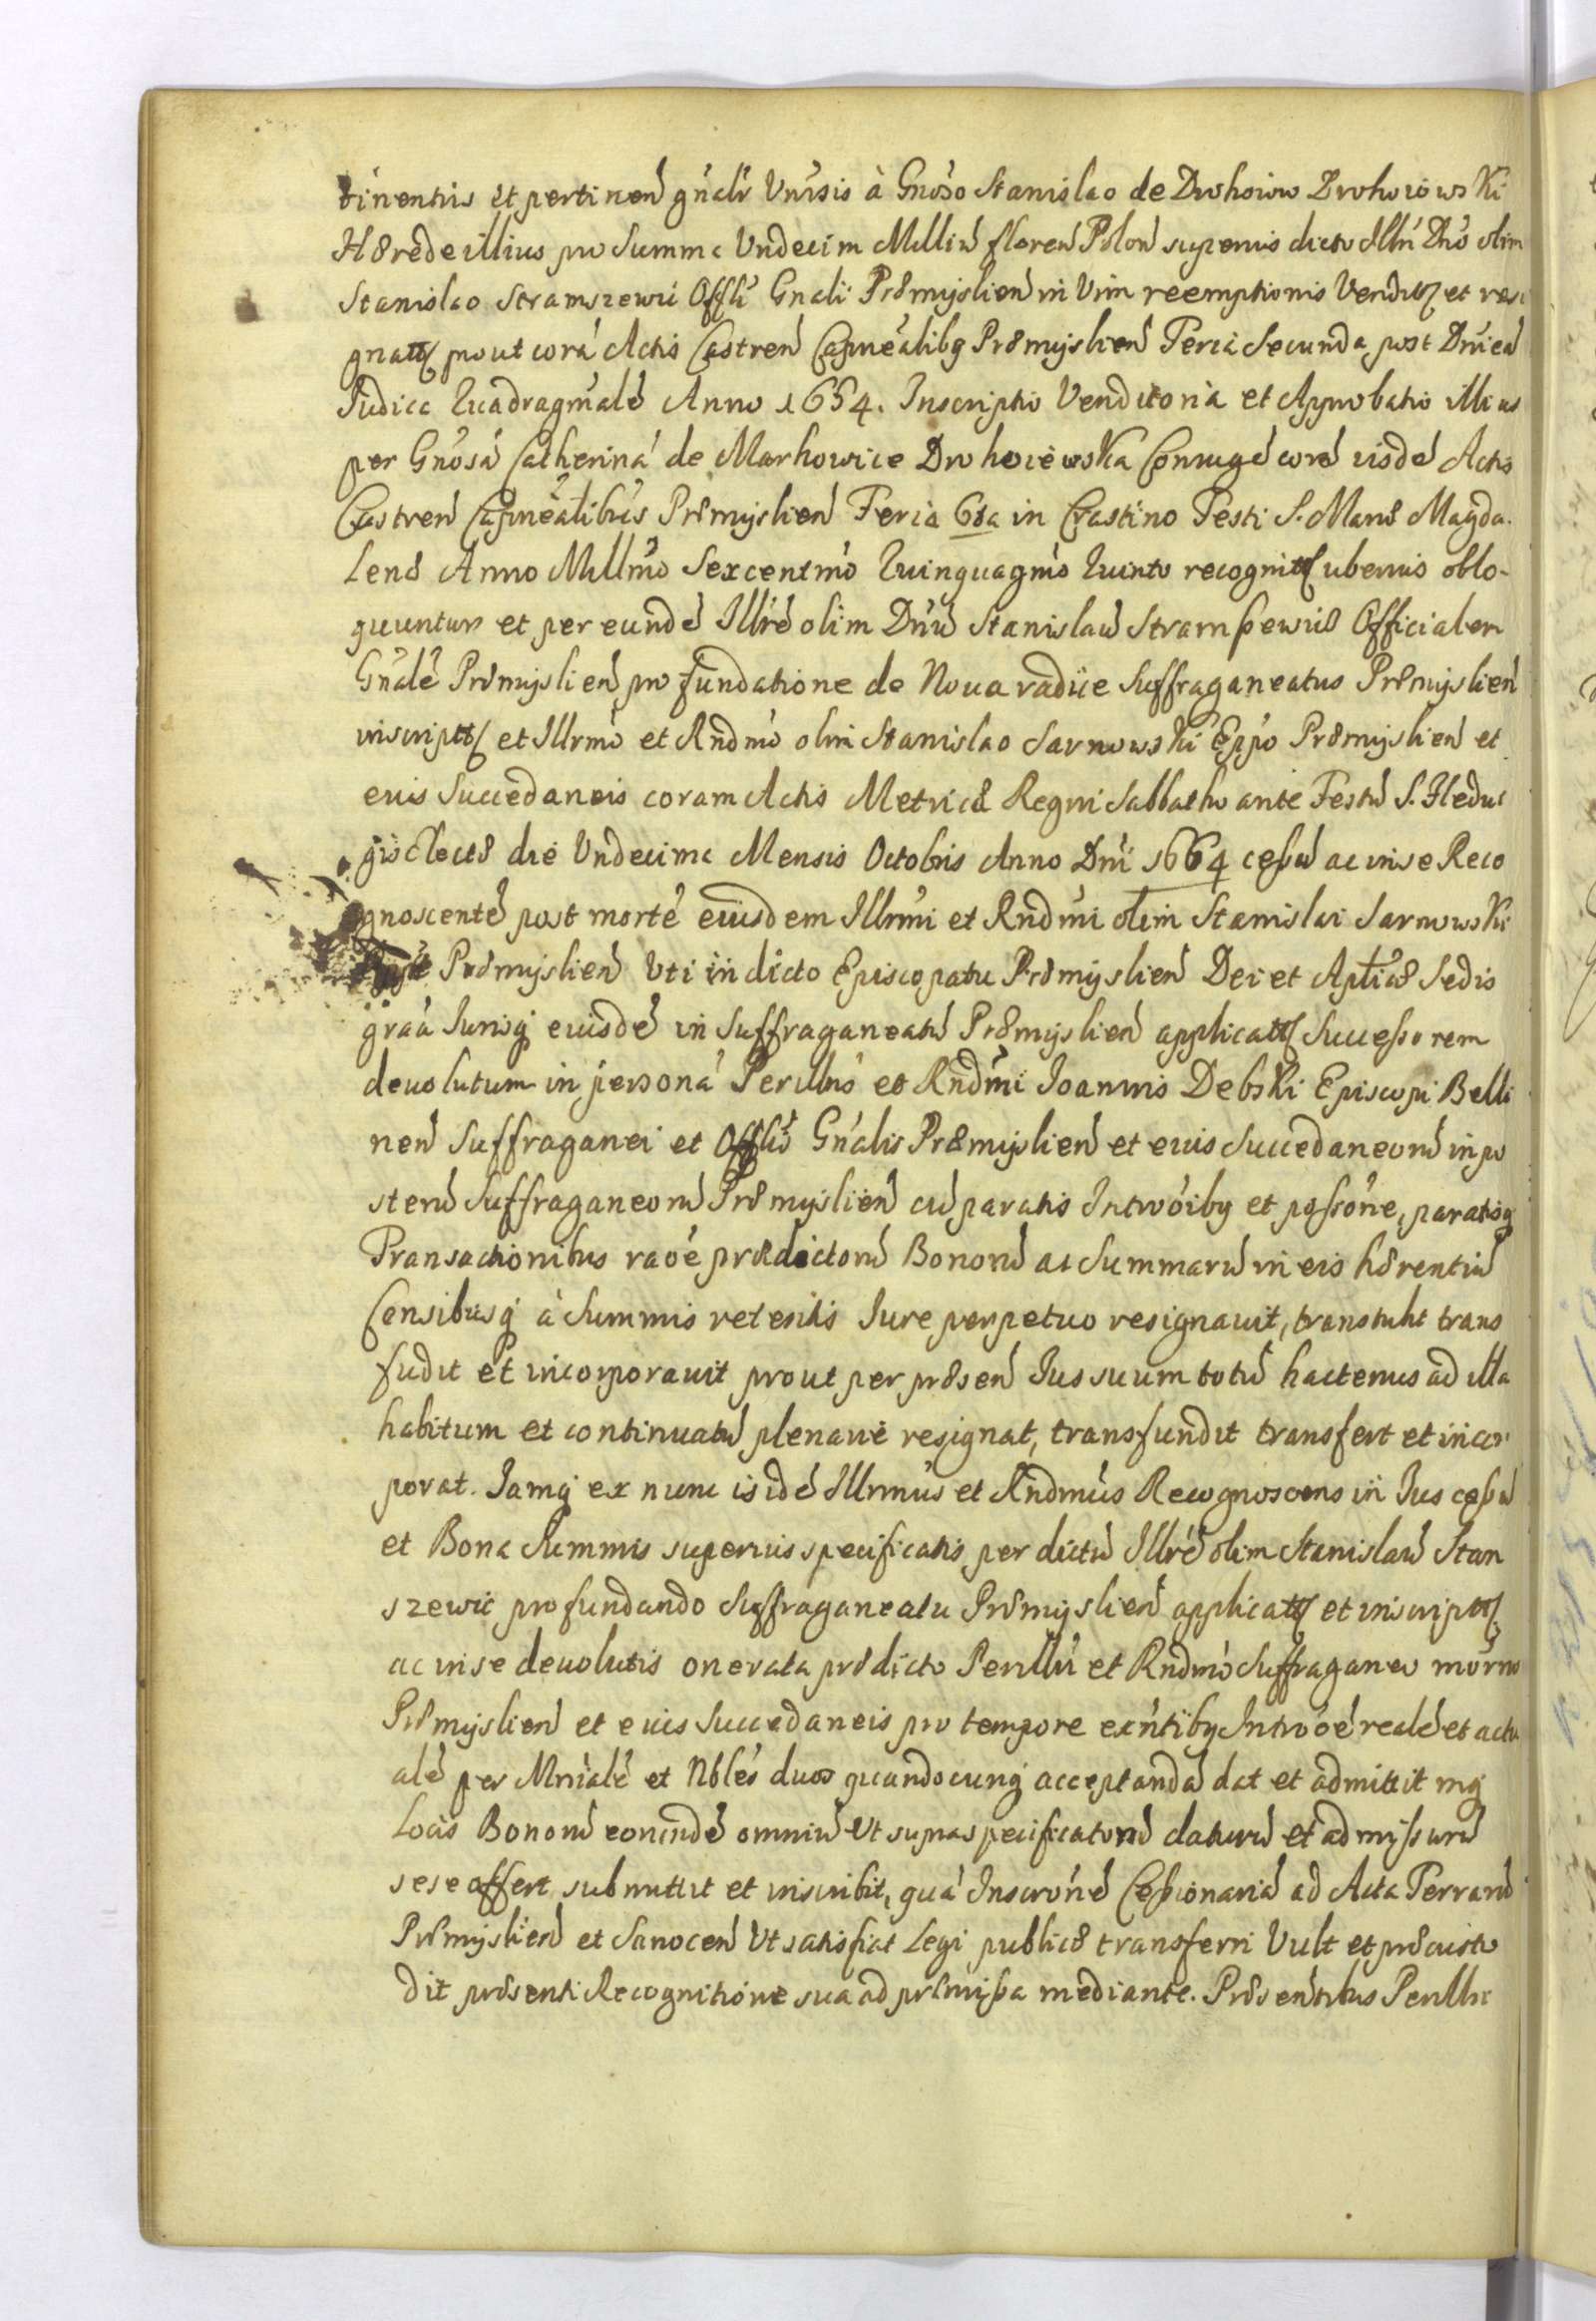 tinentiis et pertinen̄ gn̄alr Vnīsis à Gnōso Stanislao de Drohoiow Drohoiowski
Hærede illius pro Summa Vndecim Milliū floren̄ Polon̄ superius dicto Illrī Dn̄o olim
Stanislao Stramszewic Offlī Gn̄ali Præmyslien̄ in Vim reemptionis Vendit et resi
gnat prout corā Actis Castren̄ Capn̄ealibq Præmyslien̄ Feria Secunda post Dn̄icā
Judica Quadragm̄alē Anno 1654. Inscriptio Venditoria et Approbatio illius
per Gn̄osā Catherinā de Markowice Drohoiewska Coniugē corā iisdē Actis
Castren̄ Capn̄ealibus Præmyslien̄ Feria 6ta in Crastino Festi S. Mariæ Magda-
lenæ Anno Millm̄o Sexcentm̄o Quinquagm̄o Quinto recognit uberius oblo-
quuntur et per eundē Illrē olim Dn̄ū Stanislaū Stramszewic Officialem
Gn̄alē Præmyslien̄ pro fundatione de Noua radice Suffraganeatus Præmyslien̄
inscript et Illrmō et Rndmō olim Stanislao Sarnowski Epp̄o Præmyslien̄ et
eius Succedaneis coram Actis Metricæ Regni Sabbatho ante Festū S. Hedui
gis Electæ die Vndecima Mensis Octobris Anno Dn̄i 1664 cessū ac in se Reco
gnoscentē post mortē eiusdem Illrmi et Rndmi olim Stanislai Sarnowski
Præmyslien̄ Vti in dicto Episcopatu Præmyslien̄ Dei et Aplicæ Sedis
graā Jurisq eiusdē in Suffraganeatū Præmyslien̄ applicat Successorem
deuolutum in personā Perillris et Rndmi Joannis Debski Episcopi Belli
nen̄ Suffraganei et Offlis Gn̄alis Præmyslien̄ et eius Succedaneorū in po
sterū Suffraganeorū Præmyslien̄ cū paratis Introōibq et possōne, paratisq
Transactionibus raōe prædictorū Bonorū ac Summarū in eis hærentiū
Censibusq à Summis retentis Jure perpetuo resignauit, transtulit trans
fudit et incorporauit prout per præsen̄ Jus suum totū hactenus ad illa
habitum et continuatū plenariè resignat, transfundit transfert et incor
porat. Jamq ex nunc is idē Illrmus et Rndmus Recognoscens in Jus cessū
et Bona Summis superius specificatis per dictū Illrē olim Stanislaū Stan
szewic pro fundando Suffraganeatu Præmyslien̄ applicat et inscript
ac in se deuolutis onerata prædicto Perillri et Rndmō Suffraganeo modrno
Præmyslien̄ et eius Succedaneis pro tempore exn̄tibq Introōē realē et actu
alē per Mn̄ialē et Nblēs duos quandocunq acceptandā dat et admittit inq
Locis Bonorū eorundē omniū Vt supra specificatorū daturū et admissurū
sese offert submittit et inscribit, quā Inscrōnē Cessionariā ad Acta Terrarū
Præmyslien̄ et Sanocen̄ Vt satisfiat Legi publicæ transferri Vult et præcusto
dit præsenti Recognitione sua ad præmissa mediante. Præsentibus Perillri